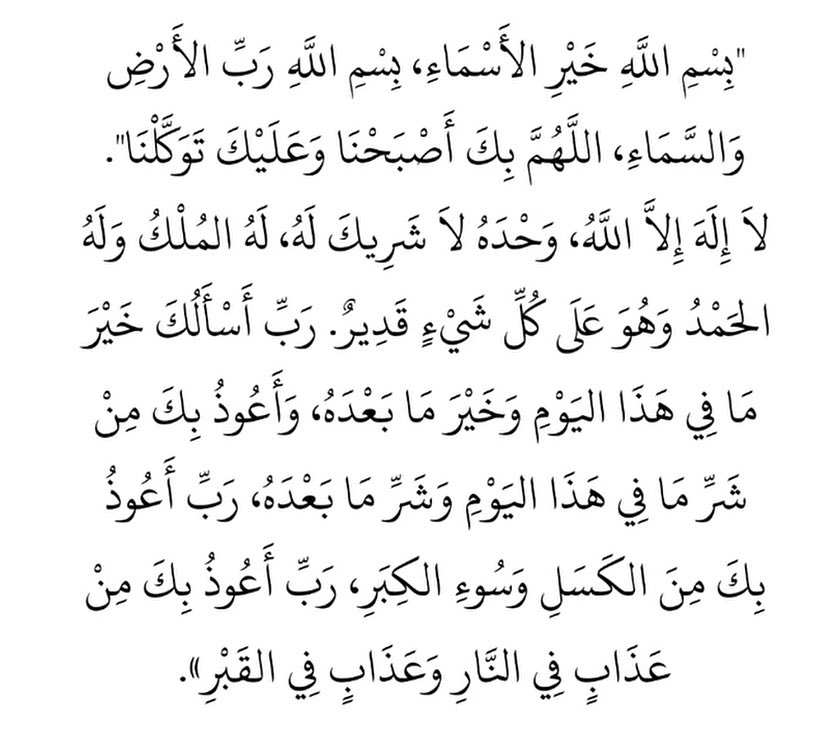 "بِسْمِ اللَّهِ خَيْرِ الأَسْمَاءِ، بِسْمِ اللَّهِ رَبِّ الأَرْضِ
وَالسَّمَاءِ، اللَّهُمَّ بِكَ أَصْبَحْنَا وَعَلَيْكَ تَوَكَّلْنَا".
لاَ إِلَهَ إِلاَّ اللَّهُ، وَحْدَهُ لاَ شَرِيكَ لَهُ، لَهُ المُلْكُ وَلَهُ
الحَمْدُ وَهُوَ عَلَى كُلِّ شَيْءٍ قَدِيرٌ. رَبِّ أَسْأَلُكَ خَيْرَ
مَا فِي هَذَا اليَوْمِ وَخَيْرَ مَا بَعْدَهُ، وَأَعُوذُ بِكَ مِنْ
شَرِّ مَا فِي هَذَا اليَوْمِ وَشَرِّ مَا بَعْدَهُ، رَبِّ أَعُوذُ
بِكَ مِنَ الكَسَلِ وَسُوءِ الكِبَرِ، رَبِّ أَعُوذُ بِكَ مِنْ
عَذَابٍ فِي النَّارِ وَعَذَابٍ فِي القَبْرِ».